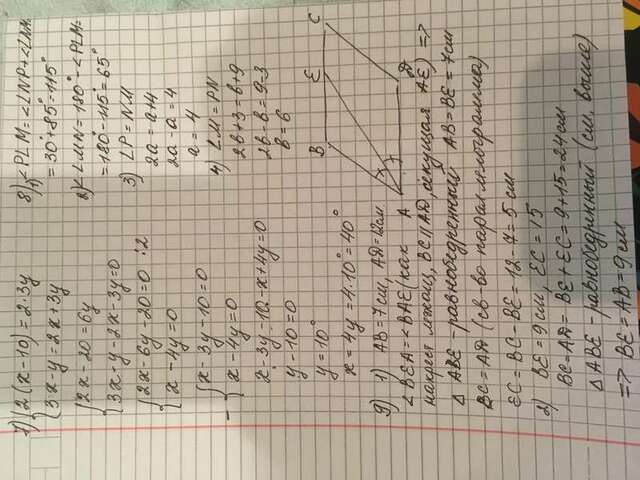 7) { 2(x-10)=2·3y
3x-y=2x+3y
{ 2x-20=6y
3x-y-2x-3y=0
{ 2x-6y-20=0 :2
x-4y=0
- { x-3y-10=0
x-4y=0
x-3y-10-x+4y=0
y-10=0
y=10°
x=4y=4·10°=40°
8) 1) ∠PLM=∠LNP+∠LNM=
=30°+85°=115°
2) ∠LMN=180°-∠PLM=
=180°-115°=65°
3) LP=NM
2a=a+4
2a-a=4
a=4
4) LM=PN
2b+3=b+9
2b-b=9-3
b=6
B E C
A D
9) 1) AB=7см, AD=12см
∠BEA=∠BAE (как
накрест лежащ, BC||AD, секущая AE) =>
△ABE-равнобедренный AB=BE=7см
BC=AD (св-во параллелограмма)
EC=BC-BE=12-7=5см
2) BE=9см, EC=15
BC=AD=BE+EC=9+15=24см
△ABE-равнобедренный (см. выше)
=> BE=AB=9см